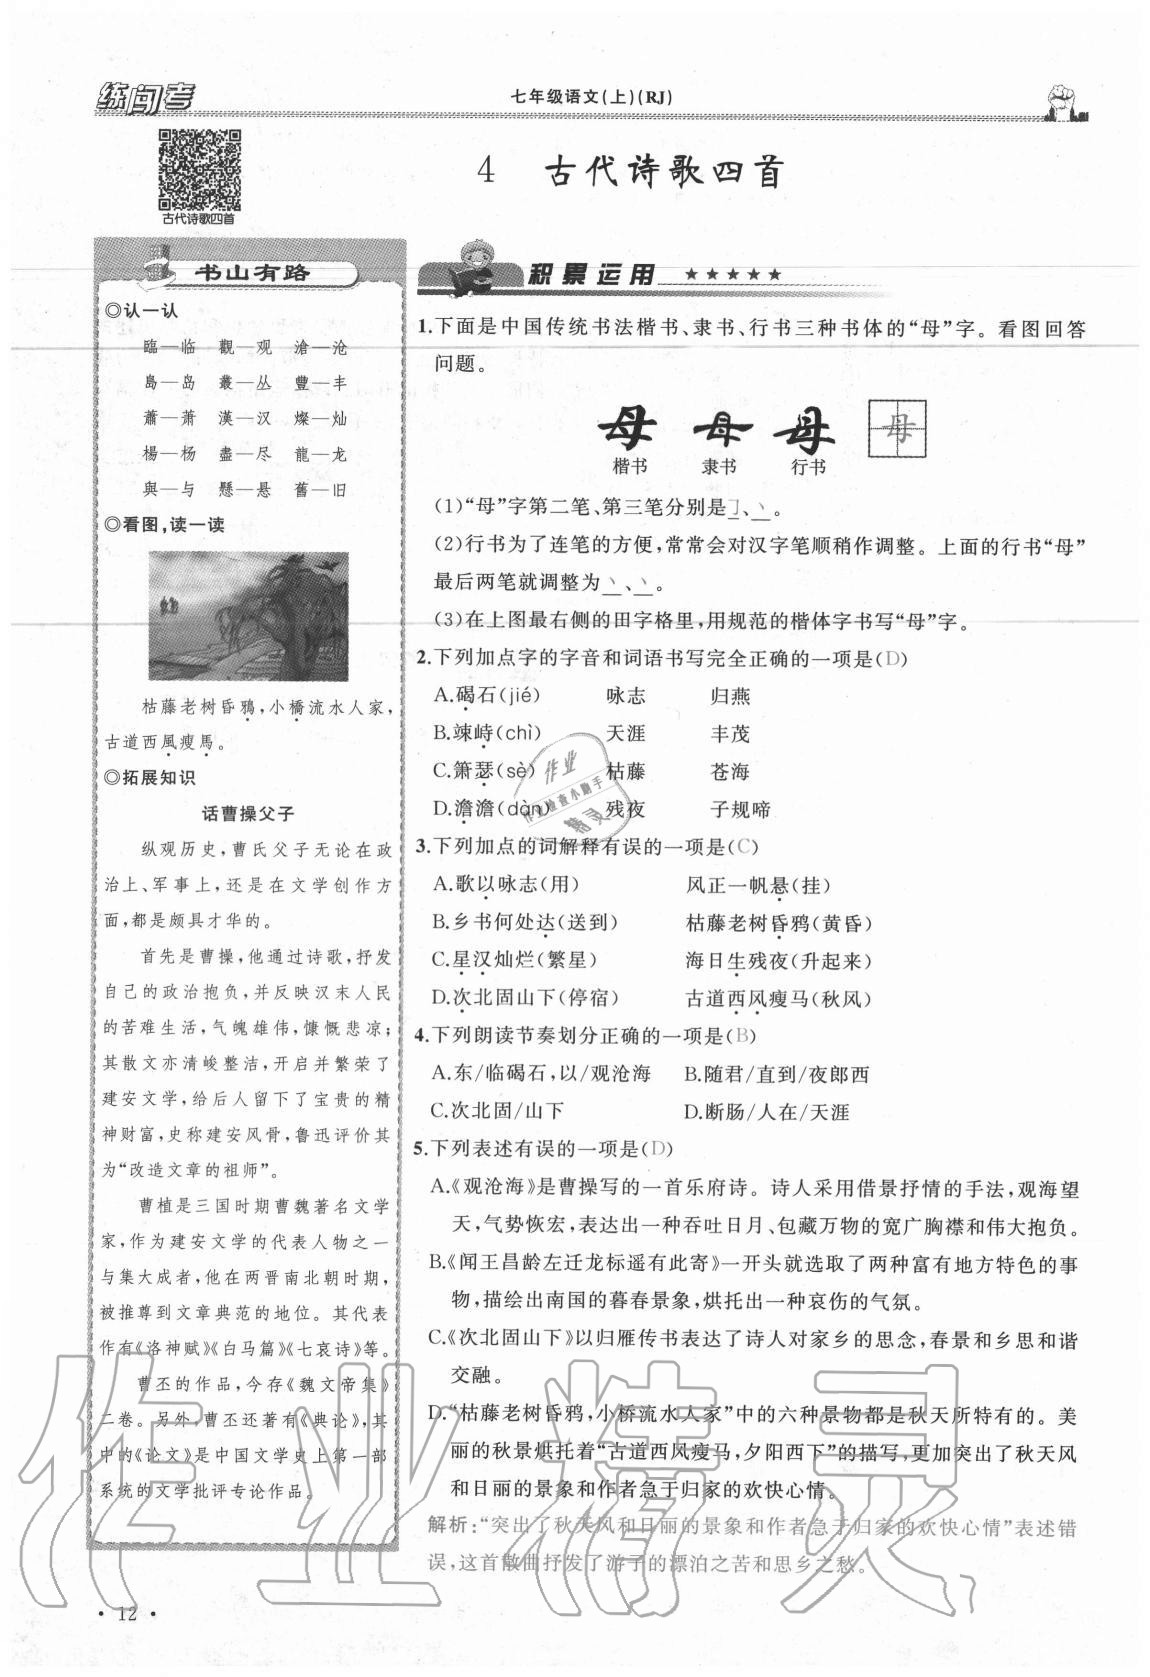 练闯考
七年级语文(上)(RJ)
古代诗歌四首
4 古代诗歌四首
书山有路
◎认一认
臨—临 觀—观 滄—沧
島—岛 叢—丛 豐—丰
蕭—萧 漢—汉 燦—灿
楊—杨 盡—尽 龍—龙
與—与 懸—悬 舊—旧
◎看图,读一读
枯藤老树昏鴉,小橋流水人家,
古道西風瘦馬。
◎拓展知识
话曹操父子
纵观历史,曹氏父子无论在政
治上、军事上,还是在文学创作方
面,都是颇具才华的。
首先是曹操,他通过诗歌,抒发
自己的政治抱负,并反映汉末人民
的苦难生活,气魄雄伟,慷慨悲凉;
其散文亦清峻整洁,开启并繁荣了
建安文学,给后人留下了宝贵的精
神财富,史称建安风骨,鲁迅评价其
为“改造文章的祖师”。
曹植是三国时期曹魏著名文学
家,作为建安文学的代表人物之一
与集大成者,他在两晋南北朝时期,
被推尊到文章典范的地位。其代表
作有《洛神赋》《白马篇》《七哀诗》等。
曹丕的作品,今存《魏文帝集》
二卷。另外,曹丕还著有《典论》,其
中的《论文》是中国文学史上第一部
系统的文学批评专论作品。
积累运用 ★★★★★
1.下面是中国传统书法楷书、隶书、行书三种书体的“母”字。看图回答
问题。
母 母 母 母
楷书 隶书 行书
(1)“母”字第二笔、第三笔分别是㇆、丶。
(2)行书为了连笔的方便,常常会对汉字笔顺稍作调整。上面的行书“母”
最后两笔就调整为丶、丶。
(3)在上图最右侧的田字格里,用规范的楷体字书写“母”字。
2.下列加点字的字音和词语书写完全正确的一项是(D)
A.碣石(jié) 咏志 归燕
B.竦峙(chì) 天涯 丰茂
C.箫瑟(sè) 枯藤 苍海
D.澹澹(dàn) 残夜 子规啼
3.下列加点的词解释有误的一项是(C)
A.歌以咏志(用) 风正一帆悬(挂)
B.乡书何处达(送到) 枯藤老树昏鸦(黄昏)
C.星汉灿烂(繁星) 海日生残夜(升起来)
D.次北固山下(停宿) 古道西风瘦马(秋风)
4.下列朗读节奏划分正确的一项是(B)
A.东/临碣石,以/观沧海 B.随君/直到/夜郎西
C.次北固/山下 D.断肠/人在/天涯
5.下列表述有误的一项是(D)
A.《观沧海》是曹操写的一首乐府诗。诗人采用借景抒情的手法,观海望
天,气势恢宏,表达出一种吞吐日月、包藏万物的宽广胸襟和伟大抱负。
B.《闻王昌龄左迁龙标遥有此寄》一开头就选取了两种富有地方特色的事
物,描绘出南国的暮春景象,烘托出一种哀伤的气氛。
C.《次北固山下》以归雁传书表达了诗人对家乡的思念,春景和乡思和谐
交融。
D.“枯藤老树昏鸦,小桥流水人家”中的六种景物都是秋天所特有的。美
丽的秋景烘托着“古道西风瘦马,夕阳西下”的描写,更加突出了秋天风
和日丽的景象和作者急于归家的欢快心情。
解析:“突出了秋天风和日丽的景象和作者急于归家的欢快心情”表述错
误,这首散曲抒发了游子的漂泊之苦和思乡之愁。
作业精灵
作业
作业检查小助手
精灵
• 12 •